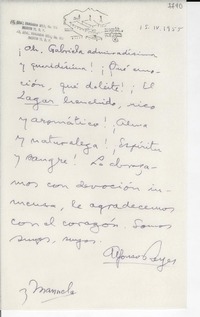 15.IV.1955
¡Ah, Gabriela admiradísima
y queridísima! ¡Qué emo-
ción, qué deleite! ¡El
Lagar henchido, rico
y aromático! ¡Alma
y naturaleza! ¡Espíritu
y sangre! La abraza-
mos con devoción in-
mensa, le agradecemos
con el corazón. Somos
suyos, suyos.
Alfonso Reyes
y Manuela